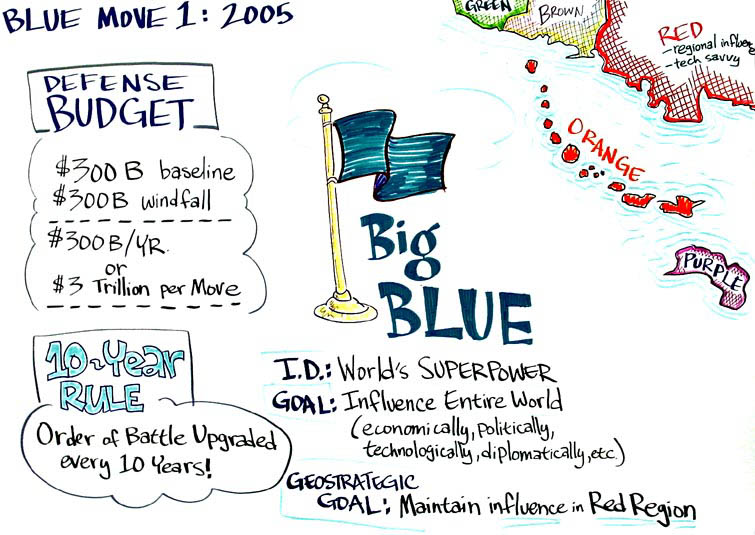 BLUE MOVE 1: 2005
DEFENSE
BUDGET
$300 B baseline
$300B windfall
$300B/YR.
or
$3 Trillion per Move
10-Year
RULE
Order of Battle Upgraded
every 10 Years!
Big
BLUE
I.D.: World's SUPERPOWER
GOAL: Influence Entire World
(economically, politically,
technologically, diplomatically, etc.)
GEOSTRATEGIC
GOAL: Maintain influence in Red Region
GREEN
BROWN
RED
- regional influence
- tech savvy
ORANGE
PURPLE